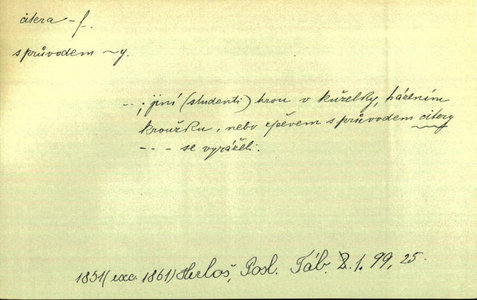 citera - f.
s průvodem ~y.
-- ; jiní (studenti) hrou v kuželky, házením
kroužku, nebo zpěvem s průvodem citery
--- se vyráželi.
1851 (exc. 1861) Herloš, Posl. Táb. 2.1. 99, 25.